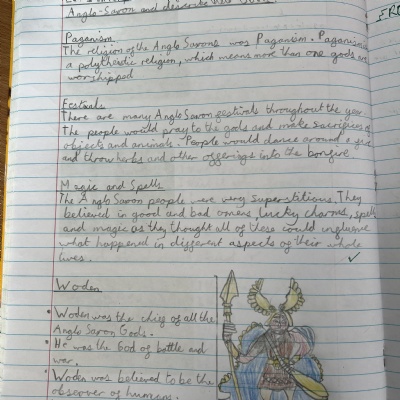 Anglo-Saxon and describe their
Paganism
The religion of the Anglo Saxons was Paganism. Paganism
a polytheistic religion, which means more than one gods are
worshipped
Festivals
There are many Anglo Saxon festivals throughout the year
the people would pray to the gods and make sacrifices of
objects and animals. People would dance around a fire
and throw herbs and other offerings into the bonfire
Magic and Spells
The Anglo Saxon people were very superstitious. They
believed in good and bad omens, lucky charms, spells
and magic as they thought all of these could influence
what happened in different aspects of their whole
lives.
Woden
• Woden was the chief of all the
Anglo Saxon Gods.
• He was the God of battle and
war.
• Woden was believed to be the
observer of humans.